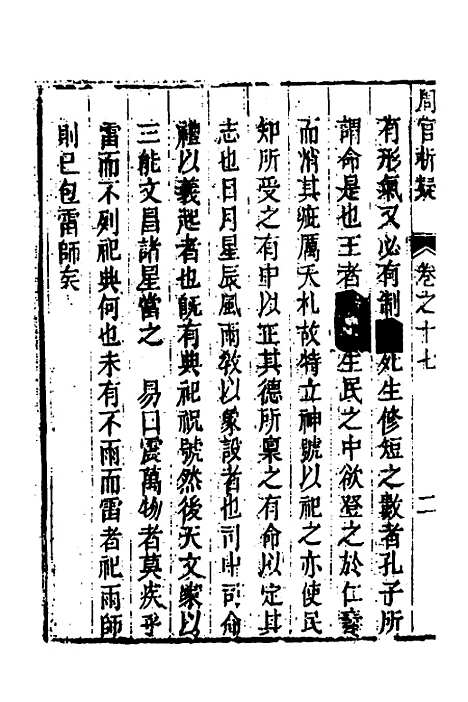 周官析疑 卷之十七 二
有形氣又必有制死生修短之數者孔子所
謂命是也王者生民之中欲登之於仁壽
而消其疵厲夭札故特立神號以祀之亦使民
知所受之有中以正其德所稟之有命以定其
志也日月星辰風雨教以象設者也司中司命
禮以義起者也旣有典祀祝號然後天文家以
三能文昌諸星當之 易曰震萬物者莫疾乎
雷而不列祀典何也未有不雨而雷者祀雨師
則已包雷師矣